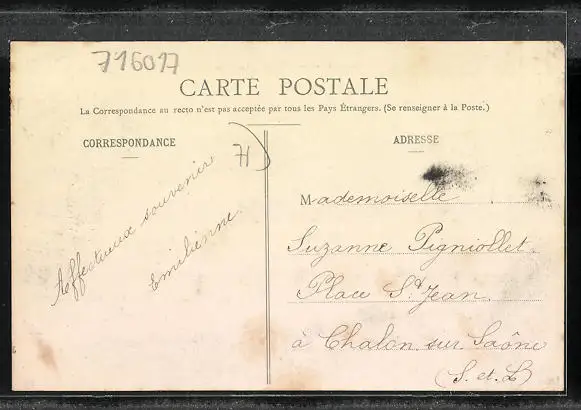 716017
CARTE POSTALE
La Correspondance au recto n'est pas acceptée par tous les Pays Étrangers. (Se renseigner à la Poste.)
CORRESPONDANCE
71
Affectueux souvenir
Emilienne
ADRESSE
Mademoiselle
Suzanne Pigniollet
Place St Jean
à Chalon sur Saône
(S. et L)